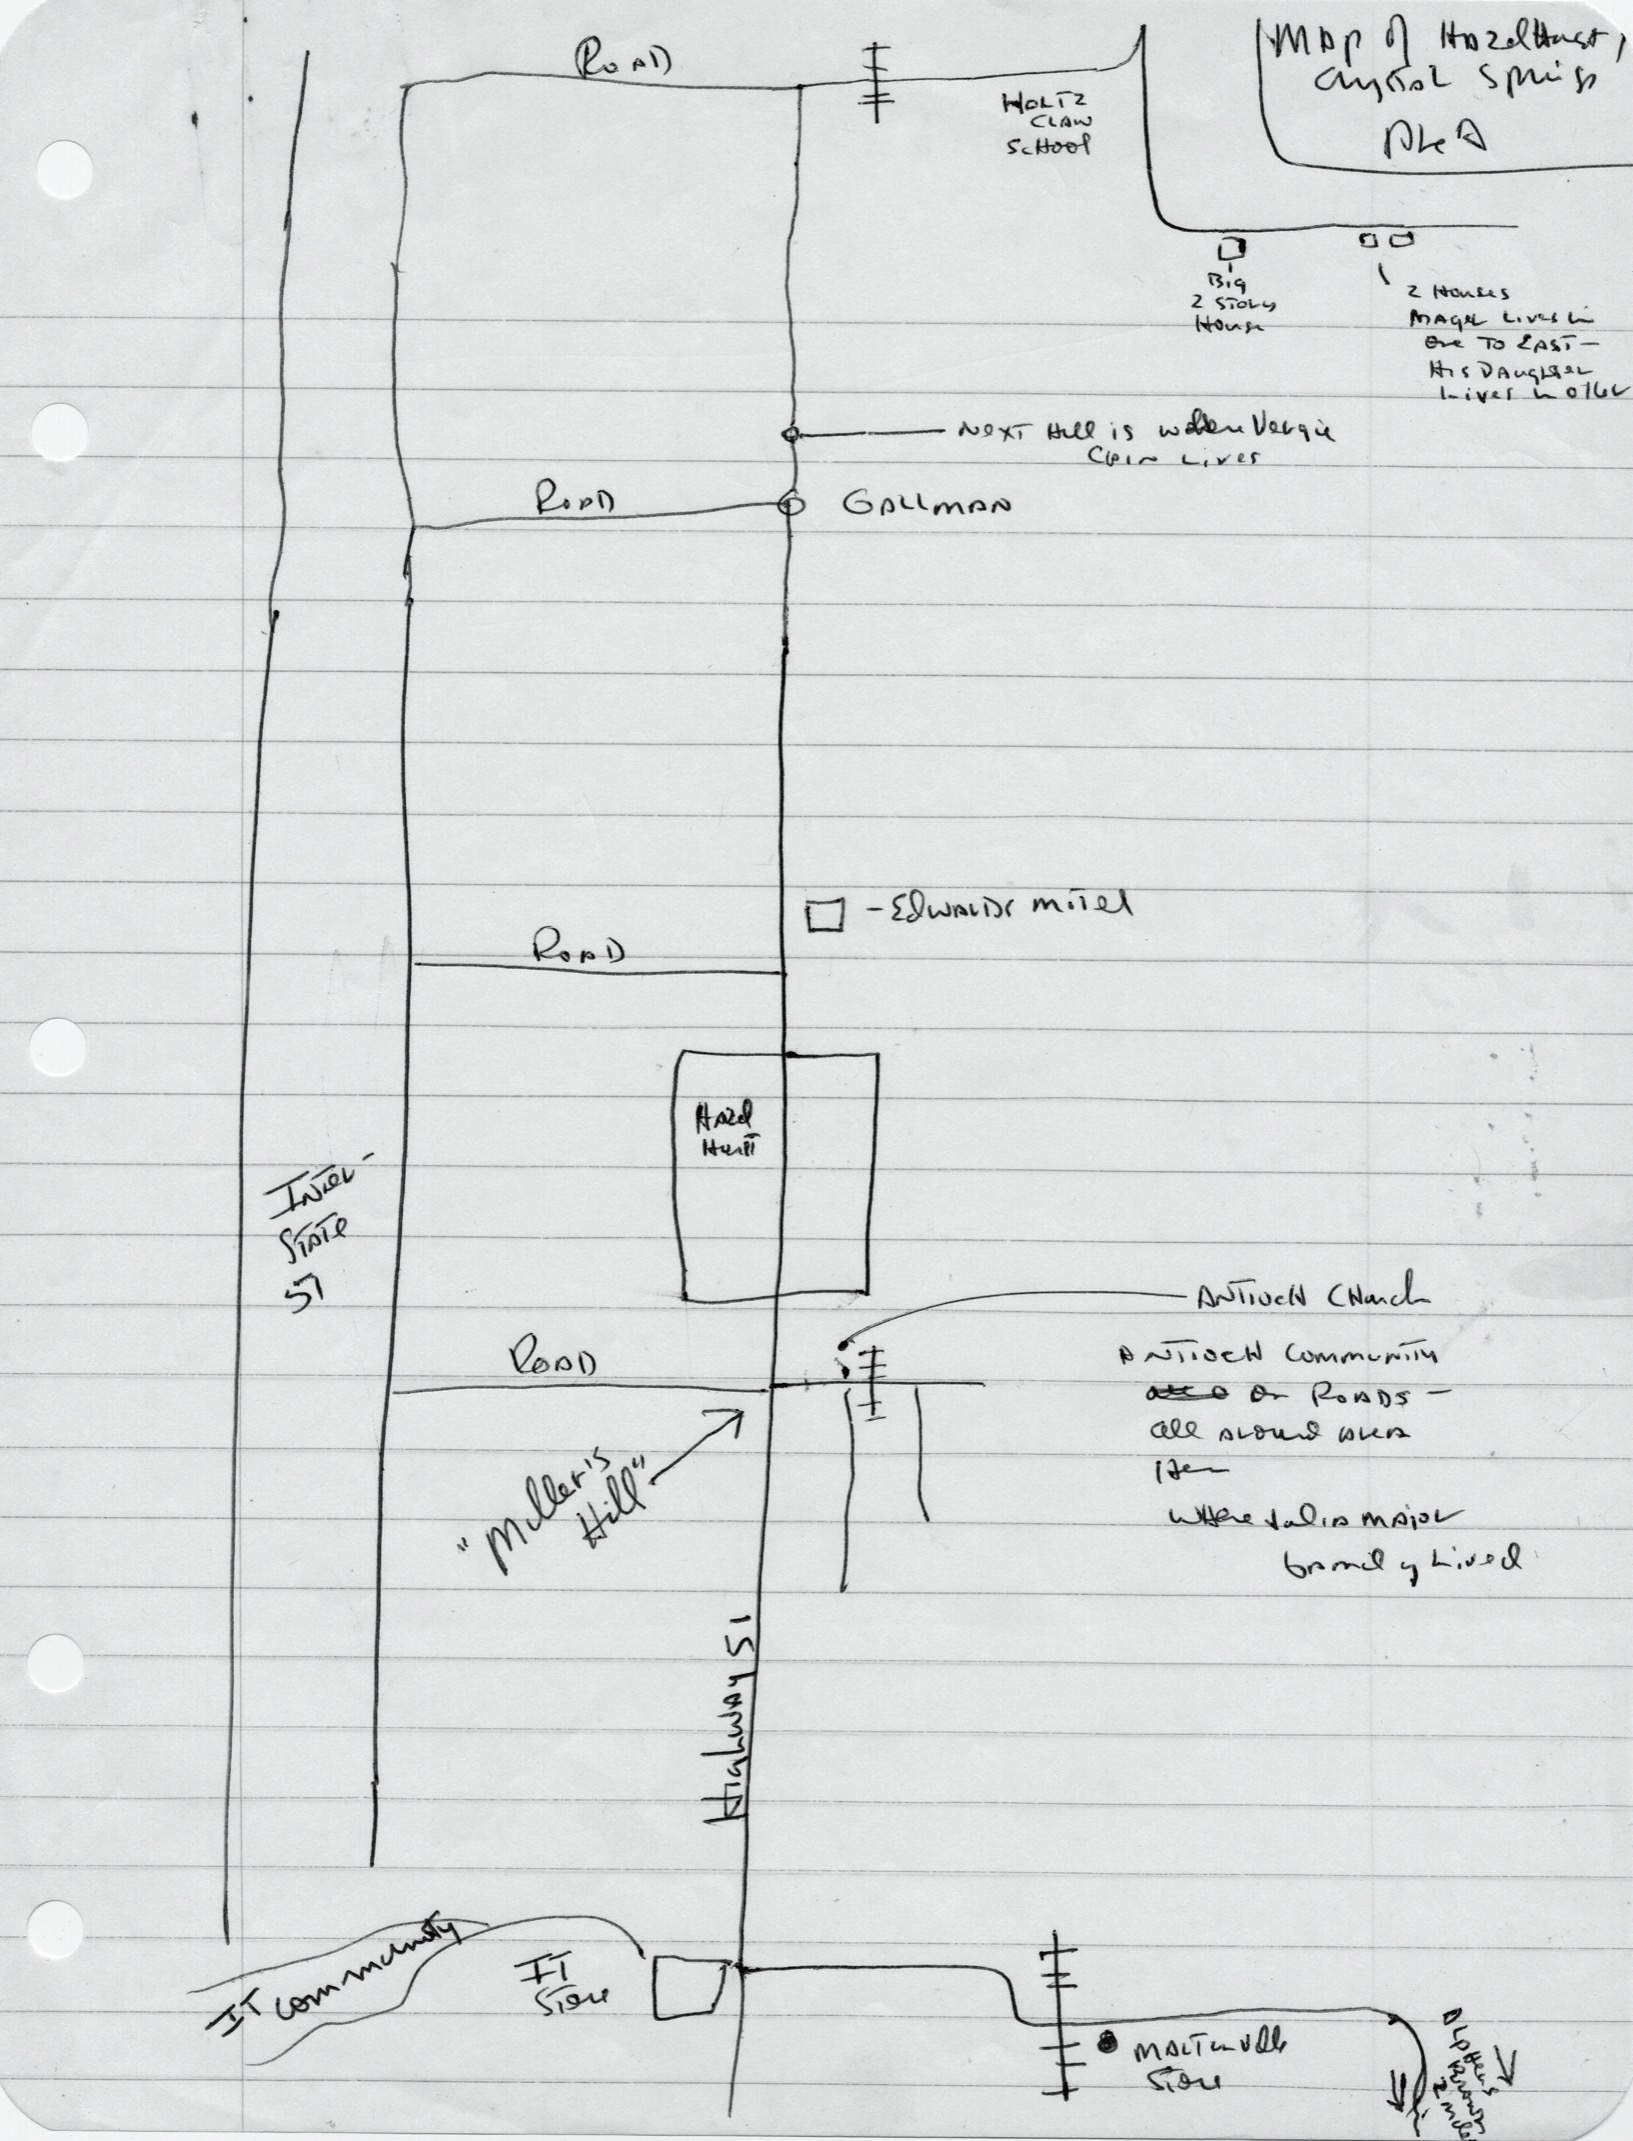 Map of Hazelhurst,
Crystal Springs
Area
Road
Holtz
Claw
School
Big
2 Story
House
2 Houses
Mager Lives in
one To East -
His Daughter
Lives in other
Next Hill is where Vergie
Cain Lives
Road
Gallman
- Edwards Motel
Road
Hazel
Hurst
Inter-
State
51
Antioch Church
Road
Antioch Community
on Roads -
all around area
Here
where Julia Major
family Lived
"Miller's
Hill"
Highway 51
IT community
IT
Store
Martinville
Store
Alpheus
Brown
2 miles